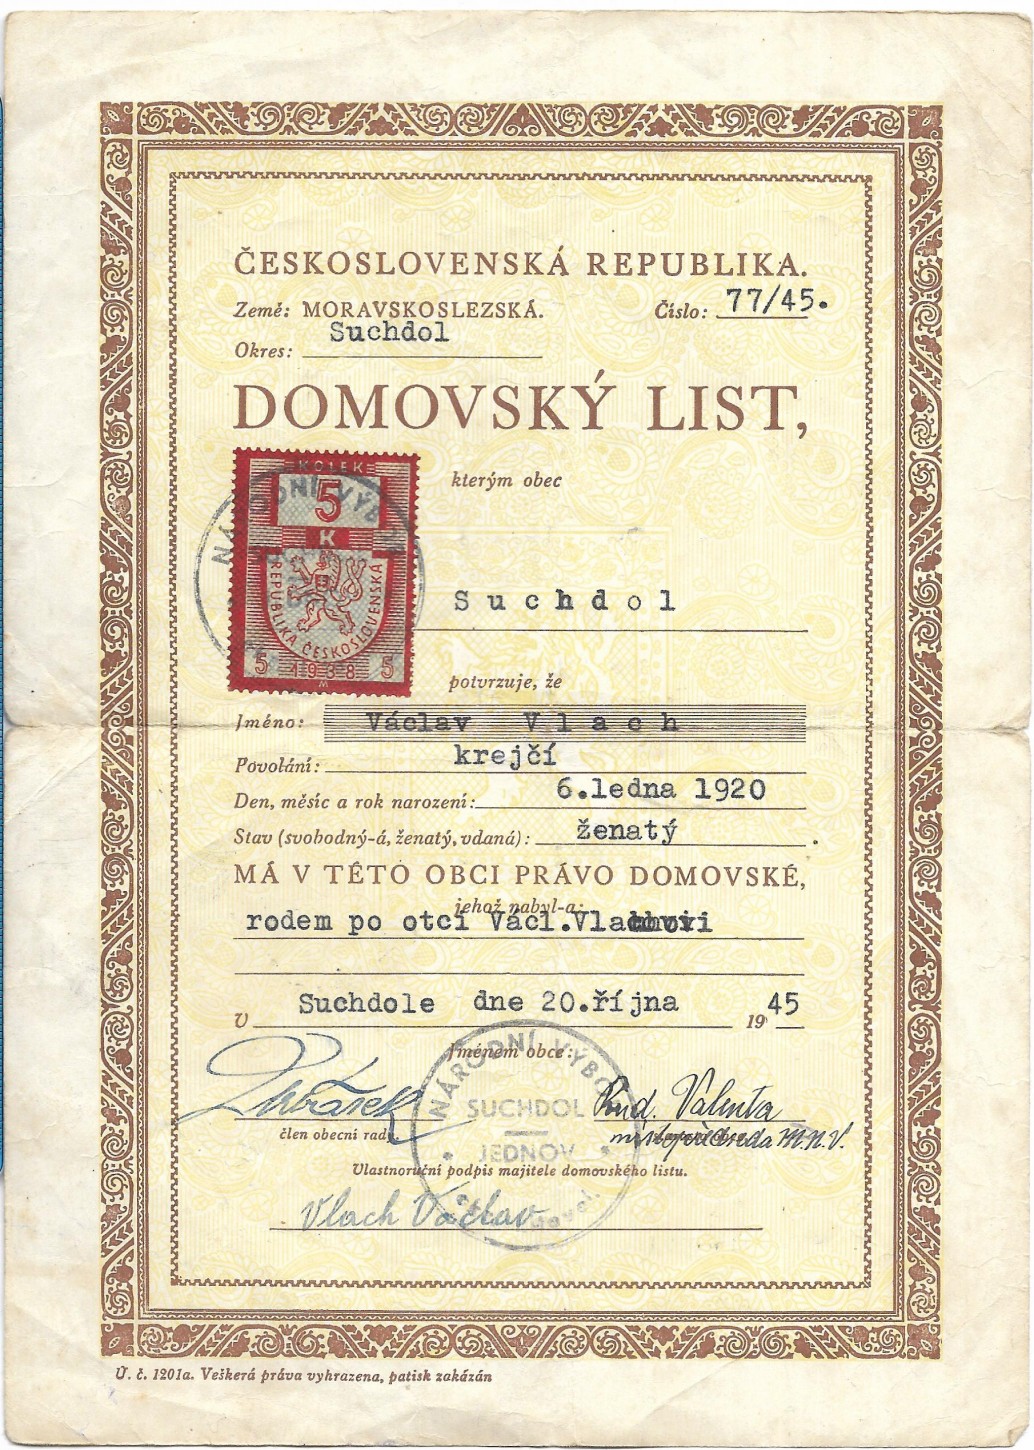 ČESKOSLOVENSKÁ REPUBLIKA.
Země: MORAVSKOSLEZSKÁ. Číslo: 77/45.
Okres: Suchdol
DOMOVSKÝ LIST,
kterým obec
KOLEK
5
K
REPUBLIKA ČESKOSLOVENSKÁ
5 1938 5
M
NÁRODNÍ VÝB
Suchdol
potvrzuje, že
Jméno: Václav Vlach
Povolání: krejčí
Den, měsíc a rok narození: 6.ledna 1920
Stav (svobodný-á, ženatý, vdaná): ženatý.
MÁ V TÉTO OBCI PRÁVO DOMOVSKÉ,
jehož nabyl-a:
rodem po otci Václ.Vlachovi
v Suchdole dne 20.října 1945
Jménem obce:
NÁRODNÍ VÝBOR
SUCHDOL
JEDNOV
Valenta
člen obecní rady
místopředseda M.N.V.
Vlastnoruční podpis majitele domovského listu.
Vlach Václav
Ú. č. 1201a. Veškerá práva vyhrazena, patisk zakázán